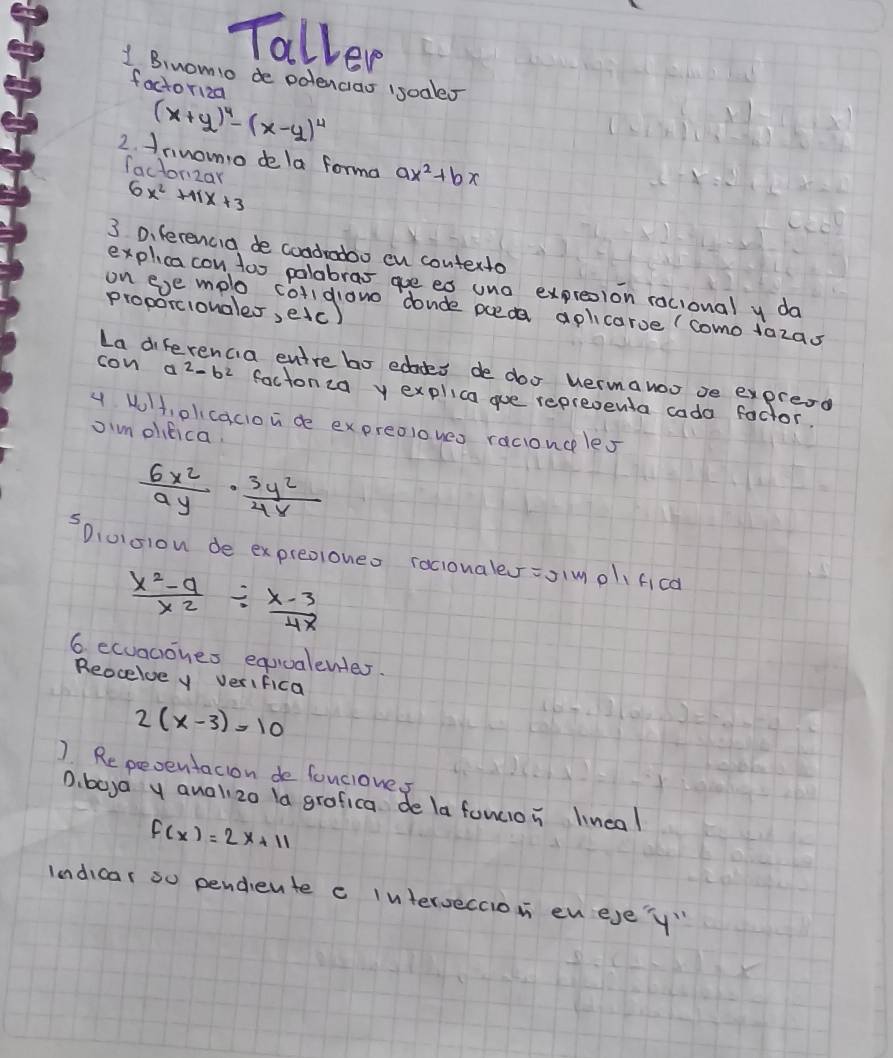 Taller
1. Binomio de potencias iguales
factoriza
(x+y)⁴-(x-y)⁴
2. trinomio de la forma ax²+bx
factorizar
6x² +11x+3
3. Diferencia de cuadrados en contexto
explica con tus palabras que es una expresión racional y da
un ejemplo cotidiano donde pueda aplicarse (como tazas
proporcionales, etc)
La diferencia entre las edades de dos hermanos se expresa
con a²-b² factoriza y explica que representa cada factor.
4. Multiplicación de expresiones racionales
simplifica.
6x²/ay · 3y²/4x
5 Division de expresiones racionales = simplifica
x²-9/x² ÷ x-3/4x
6 ecuaciónes equivalentes.
Resuelve y verifica
2(x-3)=10
7. Representacion de funciones
Dibuja y analiza la grafica de la función lineal
f(x)=2x+11
Indicar su pendiente e intersección en eje "y"